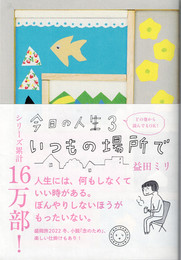 今日の人生3
いつもの場所で
益田ミリ
どの巻から
読んでもOK!
シリーズ累計
16万部!
人生には、何もしなくて
いい時がある。
ぼんやりしないほうが
もったいない。